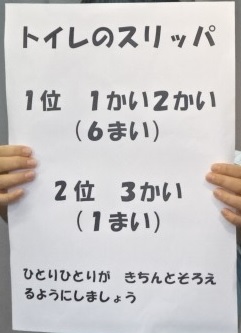 トイレのスリッパ
1位　1かい2かい
(6まい)
2位　3かい
(1まい)
ひとりひとりが　きちんとそろえ
るようにしましょう